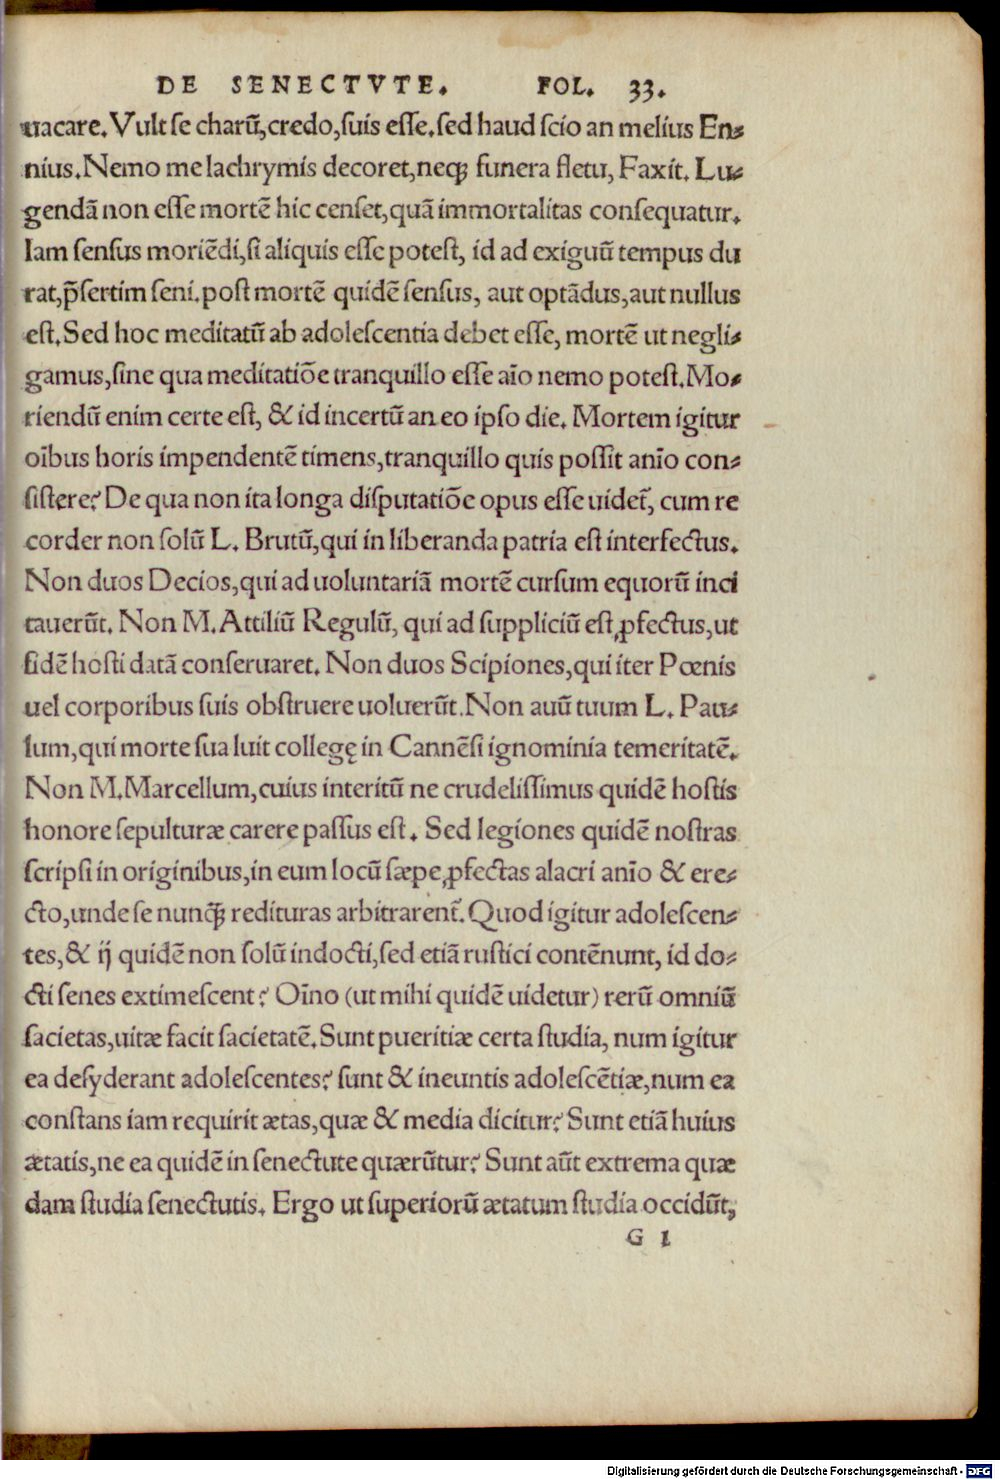 DE SENECTVTE. FOL. 33.
uacare. Vult se charū, credo, suis esse. sed haud scio an melius En-
nius. Nemo me lachrymis decoret, neqꝫ funera fletu, Faxit. Lu-
gendā non esse mortē hic censet, quā immortalitas consequatur.
Iam sensus moriēdi, si aliquis esse potest, id ad exiguū tempus du
rat, p̄sertim seni. post mortē quidē sensus, aut optādus, aut nullus
est. Sed hoc meditatū ab adolescentia debet esse, mortē ut negli-
gamus, sine qua meditatiōe tranquillo esse aīo nemo potest. Mo-
riendū enim certe est, & id incertū an eo ipso die. Mortem igitur
oībus horis impendentē timens, tranquillo quis possit anīo con-
sistere? De qua non ita longa disputatiōe opus esse uidet̄, cum re
corder non solū L. Brutū, qui in liberanda patria est interfectus.
Non duos Decios, qui ad uoluntariā mortē cursum equorū inci
tauerūt. Non M. Attiliū Regulū, qui ad suppliciū est ꝓfectus, ut
fidē hosti datā conseruaret. Non duos Scipiones, qui iter Pœnis
uel corporibus suis obstruere uoluerūt. Non auū tuum L. Pau-
lum, qui morte sua luit collegę in Cannēsi ignominia temeritatē.
Non M. Marcellum, cuius interitū ne crudelissimus quidē hostis
honore sepulturæ carere passus est. Sed legiones quidē nostras
scripsi in originibus, in eum locū sæpe ꝓfectas alacri anīo & ere-
cto, unde se nunqꝫ̄ redituras arbitrarent̄. Quod igitur adolescen-
tes, & ij quidē non solū indocti, sed etiā rustici contēnunt, id do-
cti senes extimescent? Oīno (ut mihi quidē uidetur) rerū omniū
sacietas, uitæ facit sacietatē. Sunt pueritiæ certa studia, num igitur
ea desyderant adolescentes? sunt & ineuntis adolescētiæ, num ea
constans iam requirit ætas, quæ & media dicitur? Sunt etiā huius
ætatis, ne ea quidē in senectute quærūtur? Sunt aūt extrema quæ
dam studia senectutis. Ergo ut superiorū ætatum studia occidūt,
G 1
Digitalisierung gefördert durch die Deutsche Forschungsgemeinschaft - DFG